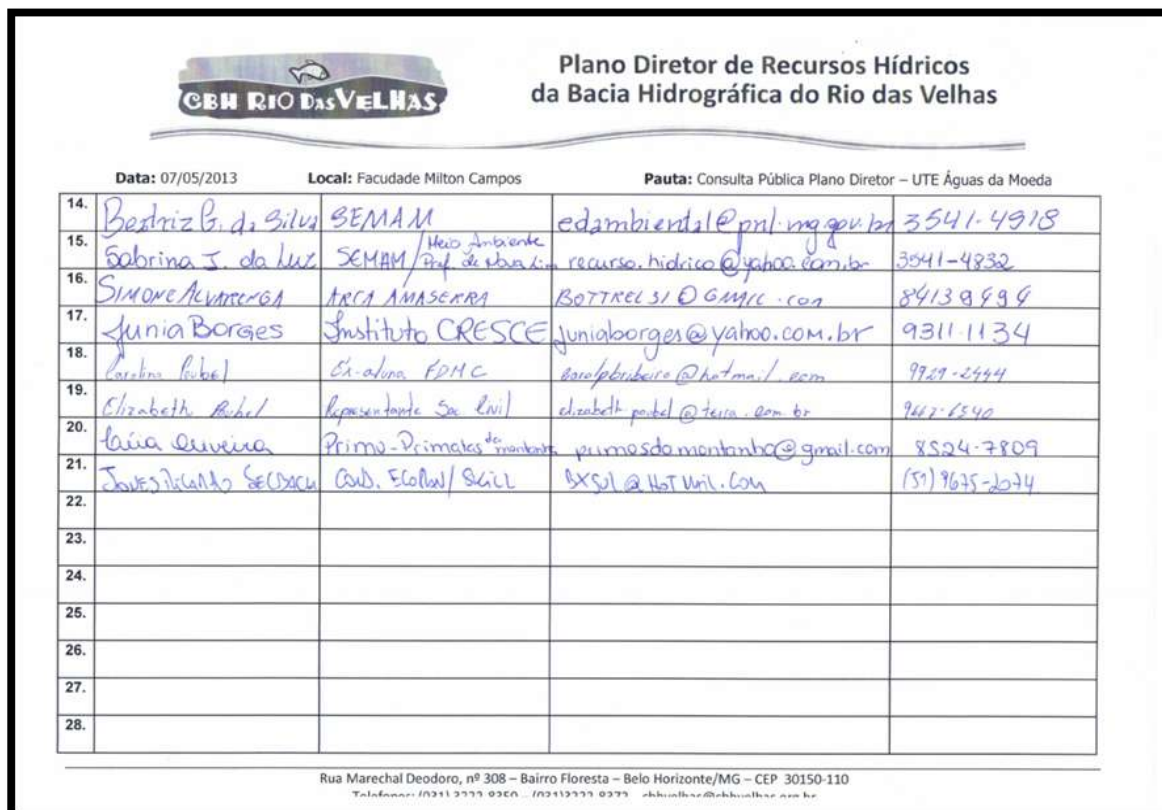 CBH RIO DAS VELHAS
Plano Diretor de Recursos Hídricos
da Bacia Hidrográfica do Rio das Velhas
Data: 07/05/2013 Local: Facudade Milton Campos Pauta: Consulta Pública Plano Diretor – UTE Águas da Moeda
14. Beatriz G. da Silva SEMAM edambiental@pnl.mg.gov.br 3541-4918
15. Sabrina J. da Luz SEMAM/Meio Ambiente Pref. de Nova Lima recurso.hidrico@yahoo.com.br 3541-4832
16. SIMONE ALVARENGA ARCA AMASERRA BOTTRELSI@GMAIL.com
17. Junia Borges Instituto CRESCE juniaborges@yahoo.com.br 9311.1134
18. Carolina Ex-aluna FDMC carolpbribeiro@hotmail.com 9929-2444
19. Elizabeth Representante Soc. Civil @terra.com.br
20. Oliveira Primo-Primatas da montanha primosdamontanha@gmail.com 8524-7809
21. BXSUL@HOTMAIL.COM 9675-2074
22.
23.
24.
25.
26.
27.
28.
Rua Marechal Deodoro, nº 308 – Bairro Floresta – Belo Horizonte/MG – CEP 30150-110
Telefones: (031) 3222-8350 – (031)3222-8372 – cbhvelhas@cbhvelhas.org.br